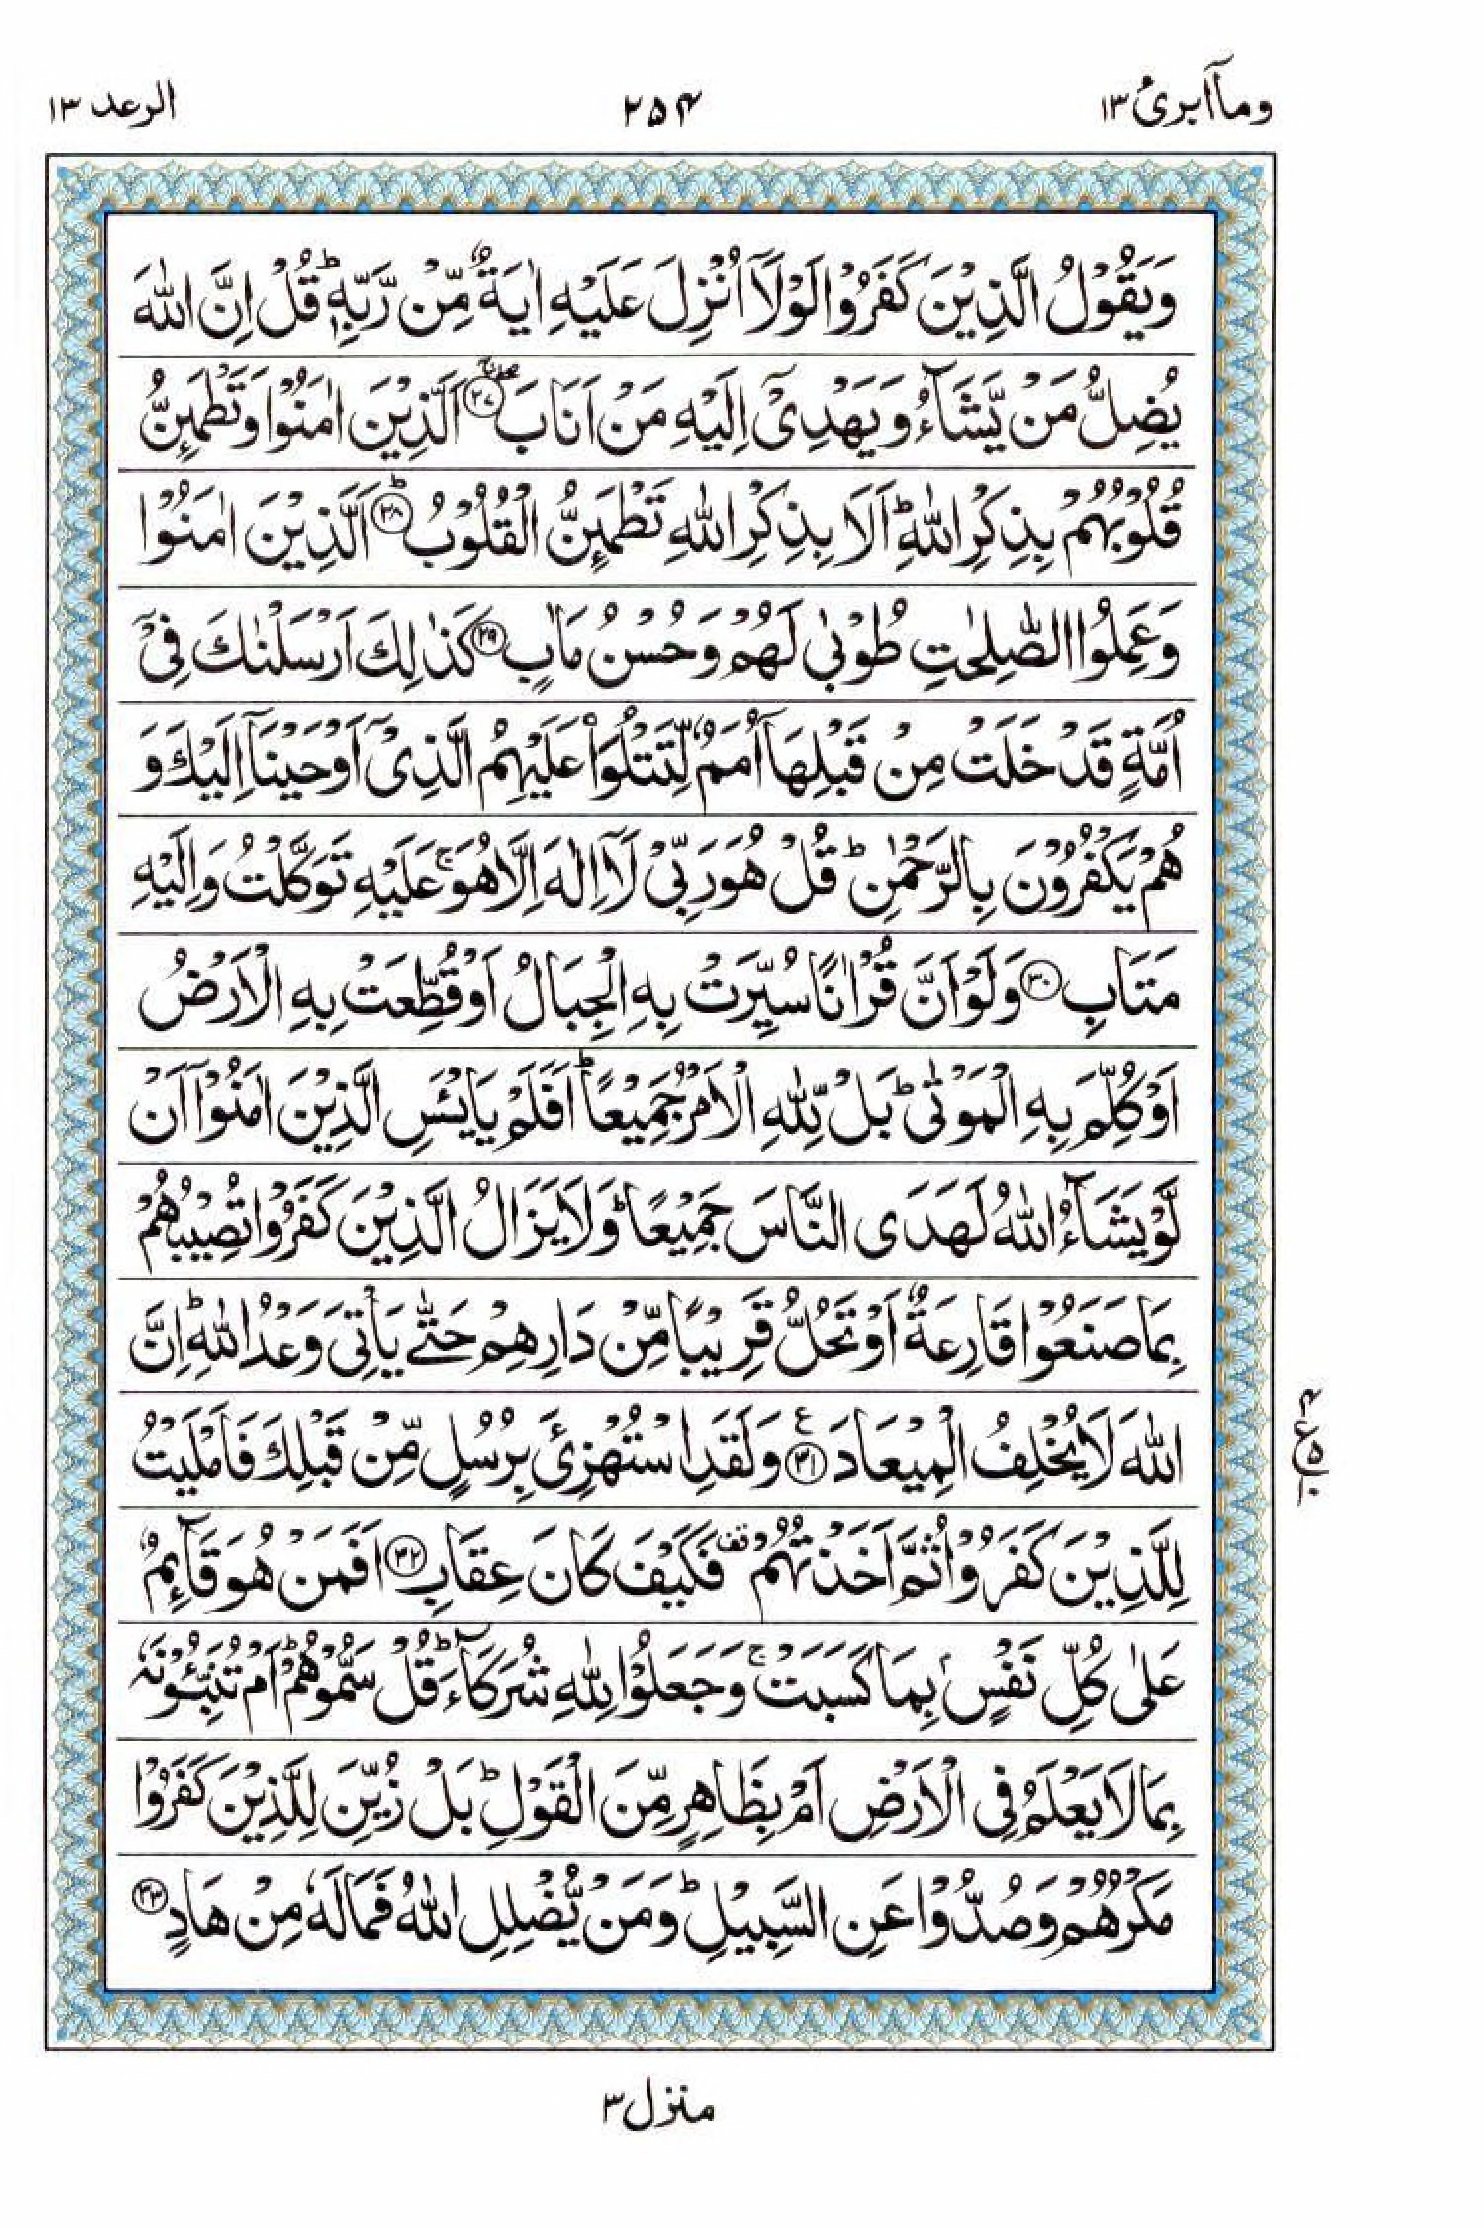 وماآبرئ ١٣
٢٥٤
الرعد ١٣
وَيَقُوْلُ الَّذِيْنَ كَفَرُوْا لَوْلَاۤ اُنْزِلَ عَلَيْهِ اٰيَةٌ مِّنْ رَّبِّهٖ ؕ قُلْ اِنَّ اللّٰهَ
يُضِلُّ مَنْ يَّشَآءُ وَيَهْدِىْۤ اِلَيْهِ مَنْ اَنَابَ ۖۚ ﴿٢٧﴾ اَلَّذِيْنَ اٰمَنُوْا وَتَطْمَٮِٕنُّ
قُلُوْبُهُمْ بِذِكْرِ اللّٰهِ ؕ اَلَا بِذِكْرِ اللّٰهِ تَطْمَٮِٕنُّ الْقُلُوْبُ ؕ ﴿٢٨﴾ اَلَّذِيْنَ اٰمَنُوْا
وَعَمِلُوا الصّٰلِحٰتِ طُوْبٰى لَهُمْ وَحُسْنُ مَاٰبٍ ﴿٢٩﴾ كَذٰلِكَ اَرْسَلْنٰكَ فِىْۤ
اُمَّةٍ قَدْ خَلَتْ مِنْ قَبْلِهَاۤ اُمَمٌ لِّتَتْلُوَا۟ عَلَيْهِمُ الَّذِىْۤ اَوْحَيْنَاۤ اِلَيْكَ وَ
هُمْ يَكْفُرُوْنَ بِالرَّحْمٰنِ ؕ قُلْ هُوَ رَبِّىْ لَاۤ اِلٰهَ اِلَّا هُوَ ۚ عَلَيْهِ تَوَكَّلْتُ وَاِلَيْهِ
مَتَابِ ﴿٣٠﴾ وَلَوْ اَنَّ قُرْاٰنًا سُيِّرَتْ بِهِ الْجِبَالُ اَوْ قُطِّعَتْ بِهِ الْاَرْضُ
اَوْ كُلِّمَ بِهِ الْمَوْتٰى ؕ بَلْ لِّلّٰهِ الْاَمْرُ جَمِيْعًا ؕ اَفَلَمْ يَايْـَٔسِ الَّذِيْنَ اٰمَنُوْۤا اَنْ
لَّوْ يَشَآءُ اللّٰهُ لَهَدَى النَّاسَ جَمِيْعًا ؕ وَلَا يَزَالُ الَّذِيْنَ كَفَرُوْا تُصِيْبُهُمْ
بِمَا صَنَعُوْا قَارِعَةٌ اَوْ تَحُلُّ قَرِيْبًا مِّنْ دَارِهِمْ حَتّٰى يَاْتِىَ وَعْدُ اللّٰهِ ؕ اِنَّ
اللّٰهَ لَا يُخْلِفُ الْمِيْعَادَ ﴿٣١﴾ ع وَلَقَدِ اسْتُهْزِئَ بِرُسُلٍ مِّنْ قَبْلِكَ فَاَمْلَيْتُ
لِلَّذِيْنَ كَفَرُوْا ثُمَّ اَخَذْتُهُمْ قف فَكَيْفَ كَانَ عِقَابِ ﴿٣٢﴾ اَفَمَنْ هُوَ قَآٮِٕمٌ
عَلٰى كُلِّ نَفْسٍ بِمَا كَسَبَتْ ۚ وَجَعَلُوْا لِلّٰهِ شُرَكَآءَ ؕ قُلْ سَمُّوْهُمْ ؕ اَمْ تُنَبِّـُٔوْنَهٗ
بِمَا لَا يَعْلَمُ فِى الْاَرْضِ اَمْ بِظَاهِرٍ مِّنَ الْقَوْلِ ؕ بَلْ زُيِّنَ لِلَّذِيْنَ كَفَرُوْا
مَكْرُهُمْ وَصُدُّوْا عَنِ السَّبِيْلِ ؕ وَمَنْ يُّضْلِلِ اللّٰهُ فَمَا لَهٗ مِنْ هَادٍ ﴿٣٣﴾
منزل ٣